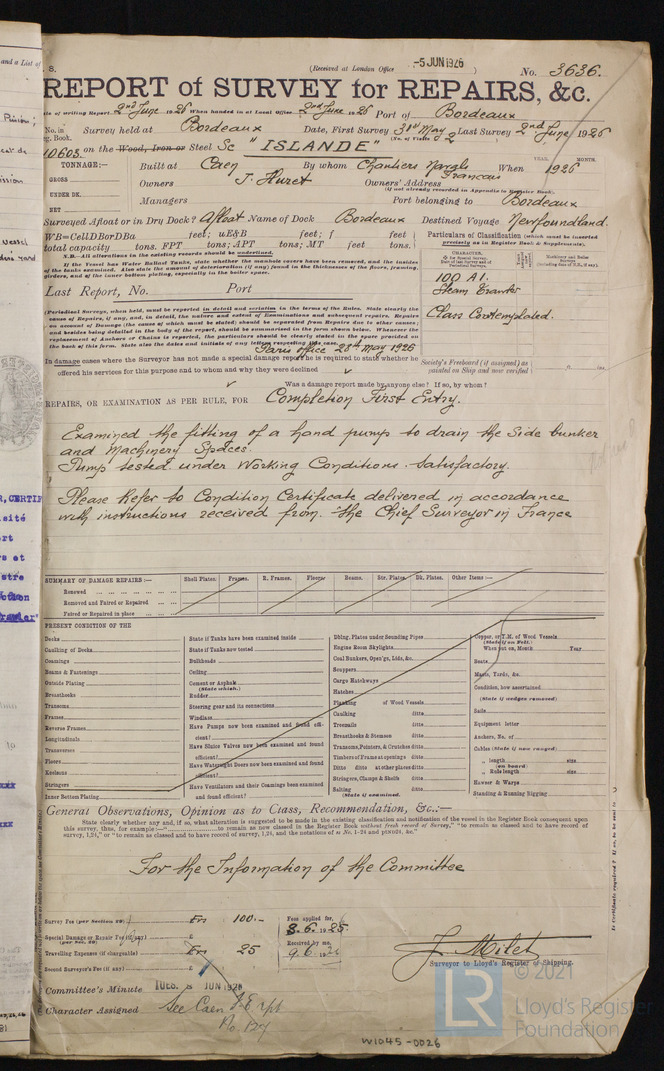 (Received at London Office -5 JUN 1926
No. 3636.
REPORT of SURVEY for REPAIRS, &c.
Date of writing Report 2nd June 1926 When handed in at Local Office 2nd June 1926 Port of Bordeaux
No. in Survey held at Bordeaux Date, First Survey 31st May Last Survey 2nd June 1926
Reg. Book. (No. of Visits 2)
10603 on the Wood, Iron or Steel Sc "ISLANDE"
TONNAGE:— Built at Caen By whom Chantiers Navals Francais When 1926
YEAR. MONTH.
GROSS Owners J. Huret Owners' Address
(If not already recorded in Appendix to Register Book).
UNDER DK. Managers Port belonging to Bordeaux
NET
Surveyed Afloat or in Dry Dock? Afloat Name of Dock Bordeaux Destined Voyage Newfoundland.
WB=CellDBorDBa feet; uE&B feet; f feet
total capacity tons. FPT tons; APT tons; MT feet tons.
Particulars of Classification (which must be inserted
precisely as in Register Book & Supplements).
N.B.—All alterations in the existing records should be underlined.
If the Vessel has Water Ballast Tanks, state whether the manhole covers have been removed, and the insides
of the tanks examined. Also state the amount of deterioration (if any) found in the thicknesses of the floors, framing,
girders, and of the inner bottom plating, especially in the boiler space.
CHARACTER.
100 A1.
Steam Trawler
Class Contemplated.
Last Report, No. Port
(Periodical Surveys, when held, must be reported in detail and seriatim in the terms of the Rules. State clearly the
cause of Repairs, if any, and, in detail, the nature and extent of Examinations and subsequent repairs. Repairs
on account of Damage (the cause of which must be stated) should be separated from Repairs due to other causes;
and besides being detailed in the body of the report, should be summarised in the form shown below. Whenever the
replacement of Anchors or Chains is reported, the particulars should be clearly stated in the space provided on
the back of this form. State also the dates and initials of any letters respecting this case
Paris office 28th May 1926
In damage cases where the Surveyor has not made a special damage report he is required to state whether he
offered his services for this purpose and to whom and why they were declined
Society's Freeboard (if assigned) as
painted on Ship and now verified
Was a damage report made by anyone else? If so, by whom?
REPAIRS, OR EXAMINATION AS PER RULE, FOR Completion First Entry.
Examined the fitting of a hand pump to drain the side bunker
and Machinery Spaces.
Pump tested under Working Conditions. Satisfactory.
Please Refer to Condition Certificate delivered in accordance
with instructions received from the Chief Surveyor in France
SUMMARY OF DAMAGE REPAIRS:— Shell Plates. Frames. R. Frames. Floors Beams. Str. Plates. Dk. Plates. Other Items:—
Renewed
Removed and Faired or Repaired
Faired or Repaired in place
PRESENT CONDITION OF THE
Decks
Caulking of Decks
Coamings
Beams & Fastenings
Outside Plating
Breasthooks
Transoms
Frames
Reverse Frames
Longitudinals
Transverses
Floors
Keelsons
Stringers
Inner Bottom Plating
State if Tanks have been examined inside
State if Tanks now tested
Bulkheads
Ceiling
Cement or Asphalt
(State which.)
Rudder
Steering gear and its connections
Windlass
Have Pumps now been examined and found efficient?
Have Sluice Valves now been examined and found
efficient?
Have Watertight Doors now been examined and found
efficient?
Have Ventilators and their Coamings been examined
and found efficient?
Dblng. Plates under Sounding Pipes
Engine Room Skylights
Coal Bunkers, Open'gs, Lids, &c.
Scuppers
Cargo Hatchways
Hatches
Planking of Wood Vessels
Caulking ditto
Treenails ditto
Breasthooks & Stemson ditto
Transoms, Pointers, & Crutches ditto
Timbers of Frame at openings ditto
Ditto ditto at other places ditto
Stringers, Clamps & Shelfs ditto
Salting ditto
(State if examined.)
Copper, or Y.M. of Wood Vessels
(State if on Felt.)
When put on, Month Year
Boats
Masts, Yards, &c.
Condition, how ascertained
(State if wedges removed)
Sails
Equipment letter
Anchors, No. of
Cables (State if now ranged)
" length size
(on board)
" Rule length size
Hawser & Warps
Standing & Running Rigging
General Observations, Opinion as to Class, Recommendation, &c.:—
State clearly whether any and, if so, what alteration is suggested to be made in the existing classification and notification of the vessel in the Register Book consequent upon
this survey, thus, for example:—" to remain as now classed in the Register Book without fresh record of Survey," "to remain as classed and to have record of
survey, 1,24," or "to remain as classed and to have record of survey, 1,24, and the notations of
For the Information of the Committee
Survey Fee (per Section 29) Frs 100.-
Special Damage or Repair Fee (if any) £
(per Sec. 29)
Travelling Expenses (if chargeable) Frs 25
Second Surveyor's Fee (if any) £
Fees applied for,
8.6.1925.
Received by me,
9.6.1926
J. Milet
Surveyor to Lloyd's Register of Shipping.
Committee's Minute TUES. 8 JUN 1926
Character Assigned See Caen F.E. rpt
No. 124
© 2021
LR Lloyd's Register
Foundation
W1045-0026